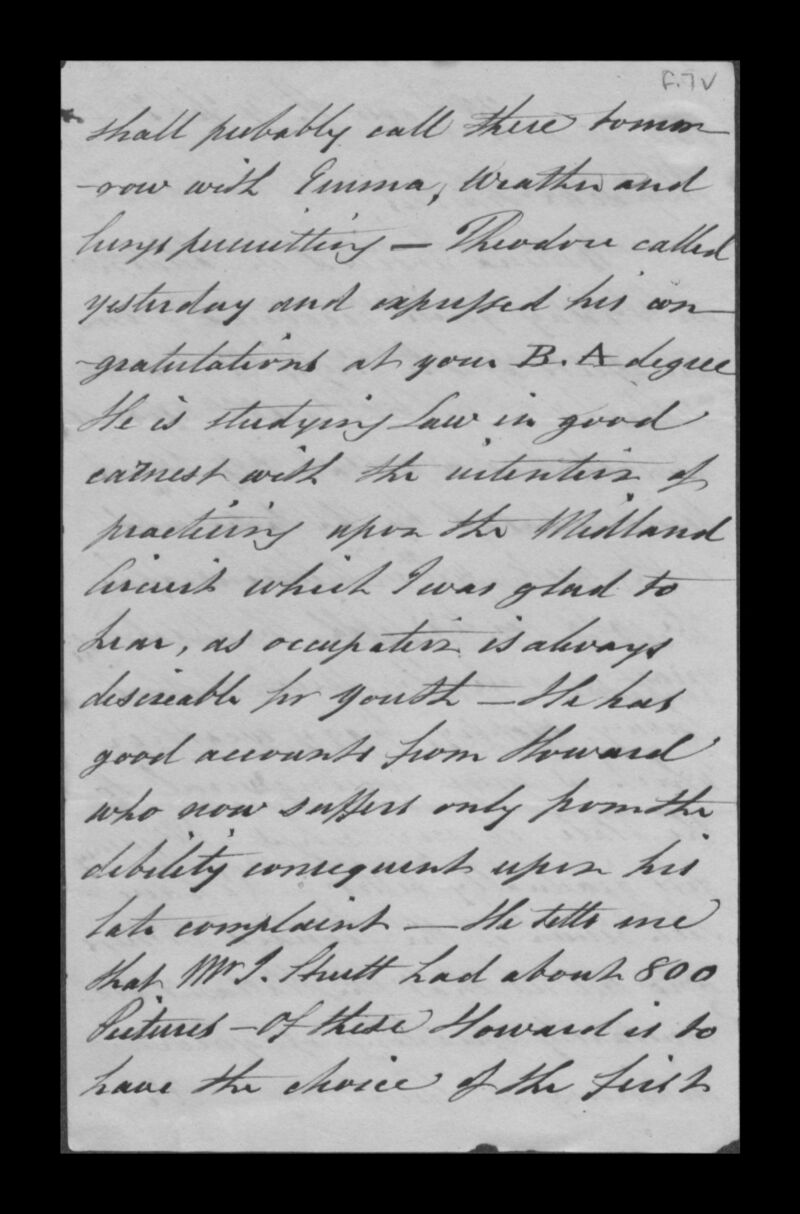 F.7V
shall probably call there tomor
-row with Emma, Weather and
lungs permitting — Theodore called
yesterday and expressed his con
-gratulations at your B. A degree
He is studying Law in good
earnest with the intention of
practicing upon the Midland
Circuit which I was glad to
hear, as occupation is always
desireable for youth — He has
good accounts from Howard
who now suffers only from the
debility consequent upon his
late complaint — He tells me
that Mr J. Strutt had about 800
Pictures — Of these Howard is to
have the choice of the first